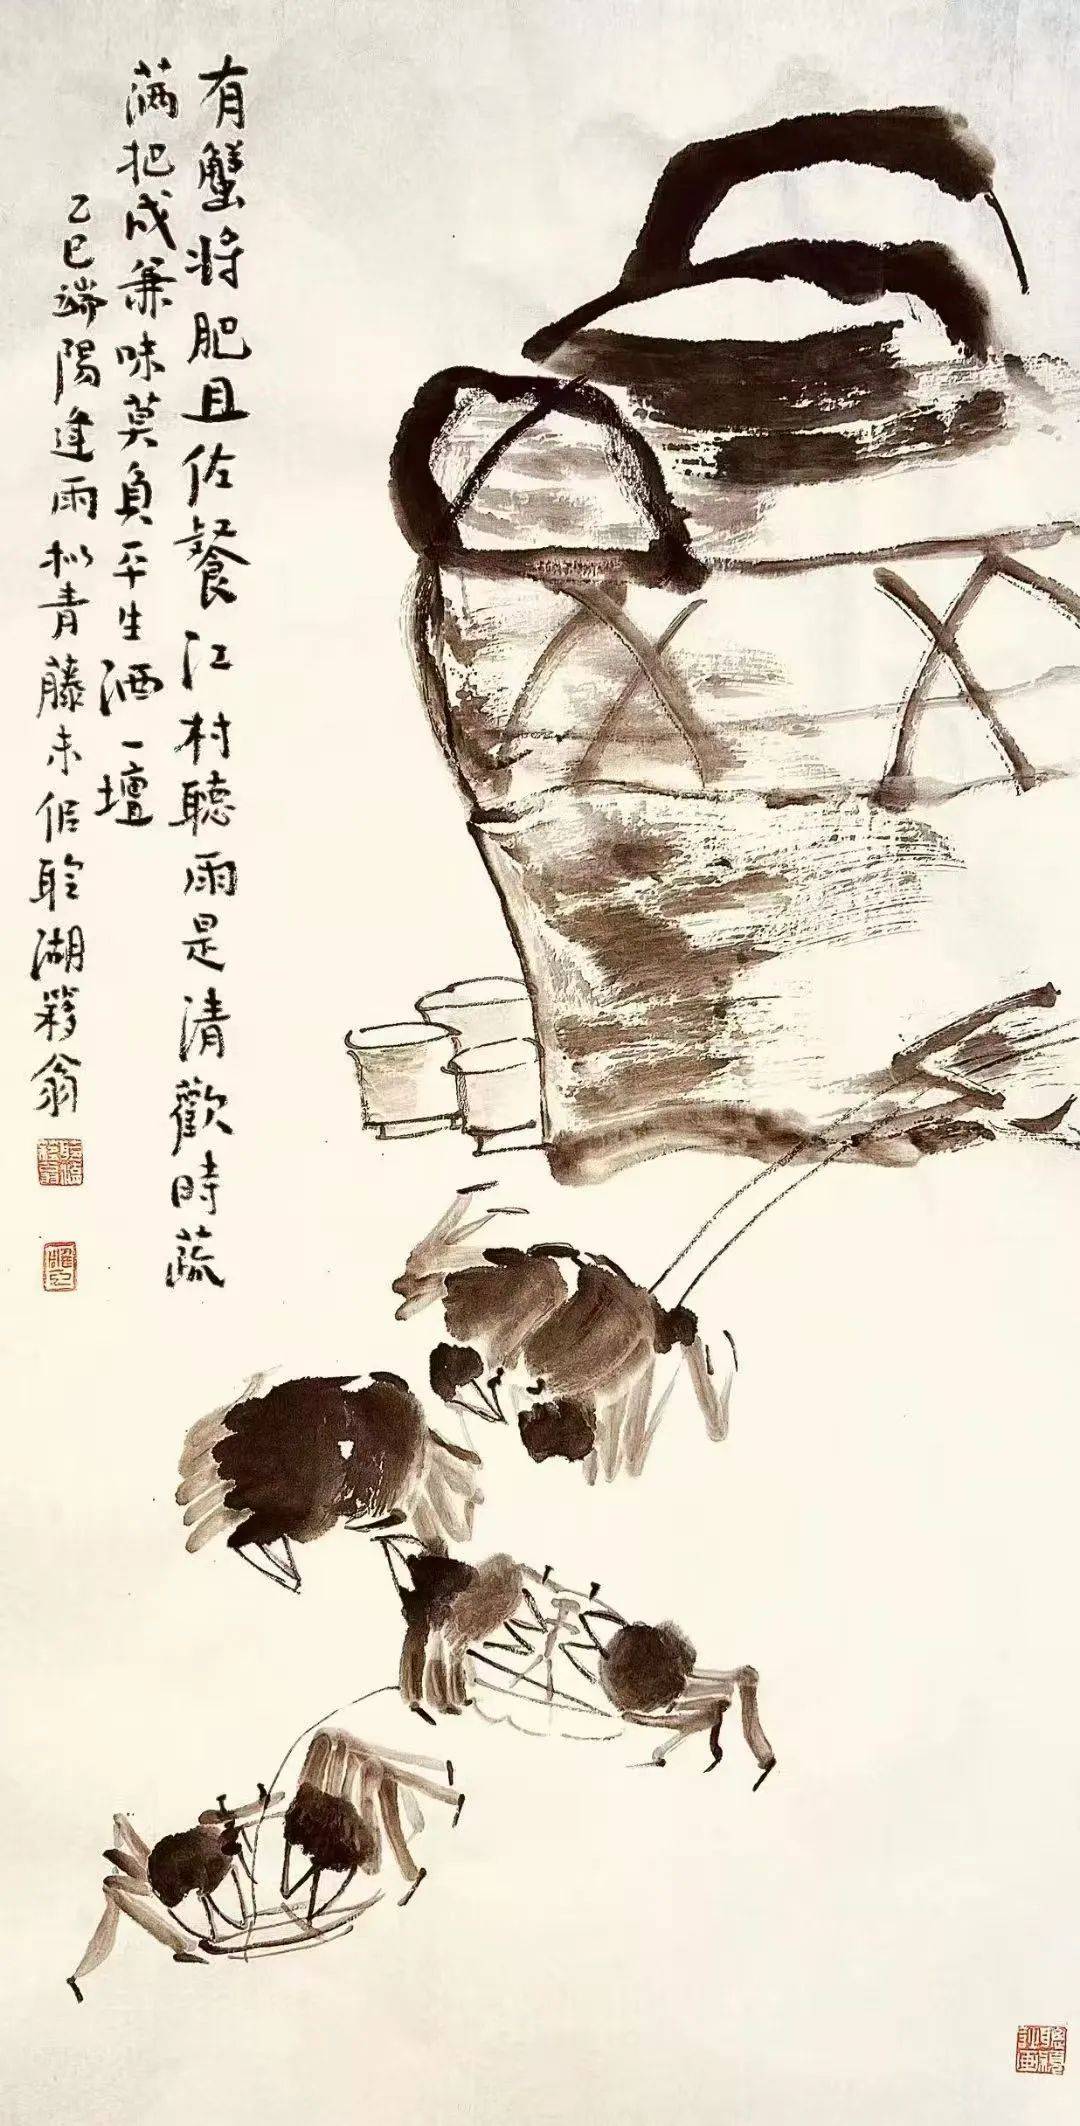 有蟹将肥且佐餐江村聽雨是清歡時蔬
满把成兼味莫負平生酒一壇
乙巳端陽逢雨拟青藤未佀聆湖簃翁